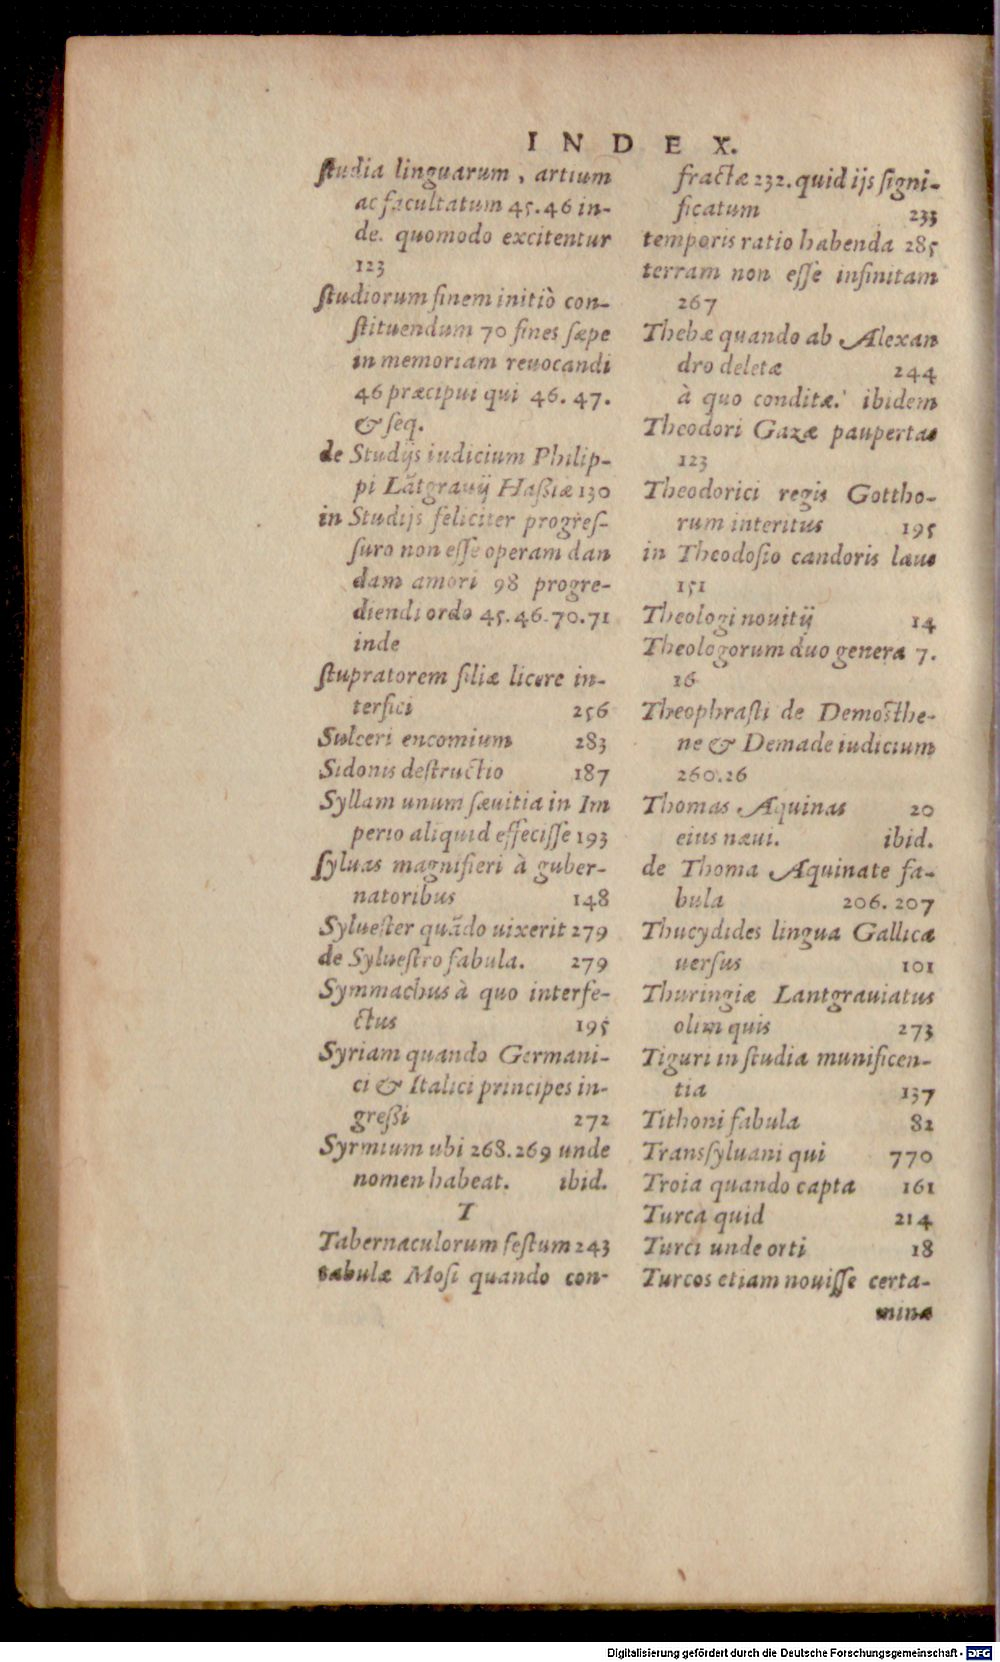 INDEX.
studia linguarum, artium
ac facultatum 45.46 in-
de. quomodo excitentur
123
studiorum finem initiò con-
stituendum 70 fines sæpe
in memoriam reuocandi
46 præcipui qui 46. 47.
& seq.
de Studijs iudicium Philip-
pi Lãtgrauij Haßiæ 130
in Studijs feliciter progres-
suro non esse operam dan
dam amori 98 progre-
diendi ordo 45.46.70.71
inde
stupratorem filiæ licere in-
terfici 256
Sulceri encomium 283
Sidonis destructio 187
Syllam unum sæuitia in Im
perio aliquid effecisse 193
syluas magnifieri à guber-
natoribus 148
Syluester quãdo uixerit 279
de Syluestro fabula. 279
Symmachus à quo interfe-
ctus 195
Syriam quando Germani-
ci & Italici principes in-
greßi 272
Syrmium ubi 268.269 unde
nomen habeat. ibid.
T
Tabernaculorum festum 243
tabulæ Mosi quando con-
fractæ 232. quid ijs signi-
ficatum 233
temporis ratio habenda 285
terram non esse infinitam
267
Thebæ quando ab Alexan
dro deletæ 244
à quo conditæ. ibidem
Theodori Gazæ paupertas
123
Theodorici regis Gottho-
rum interitus 195
in Theodosio candoris laus
151
Theologi nouitij 14
Theologorum duo genera 7.
16
Theophrasti de Demosthe-
ne & Demade iudicium
260.26
Thomas Aquinas 20
eius næui. ibid.
de Thoma Aquinate fa-
bula 206. 207
Thucydides lingua Gallica
uersus 101
Thuringiæ Lantgrauiatus
olim quis 273
Tiguri in studia munificen-
tia 137
Tithoni fabula 82
Transsyluani qui 770
Troia quando capta 161
Turca quid 214
Turci unde orti 18
Turcos etiam nouisse certa-
mina
Digitalisierung gefördert durch die Deutsche Forschungsgemeinschaft - DFG